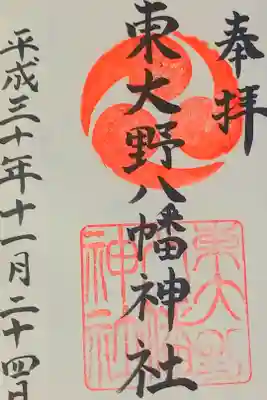 奉拝
東大野八幡神社
平成三十年十一月二十四日
東大野八幡神社